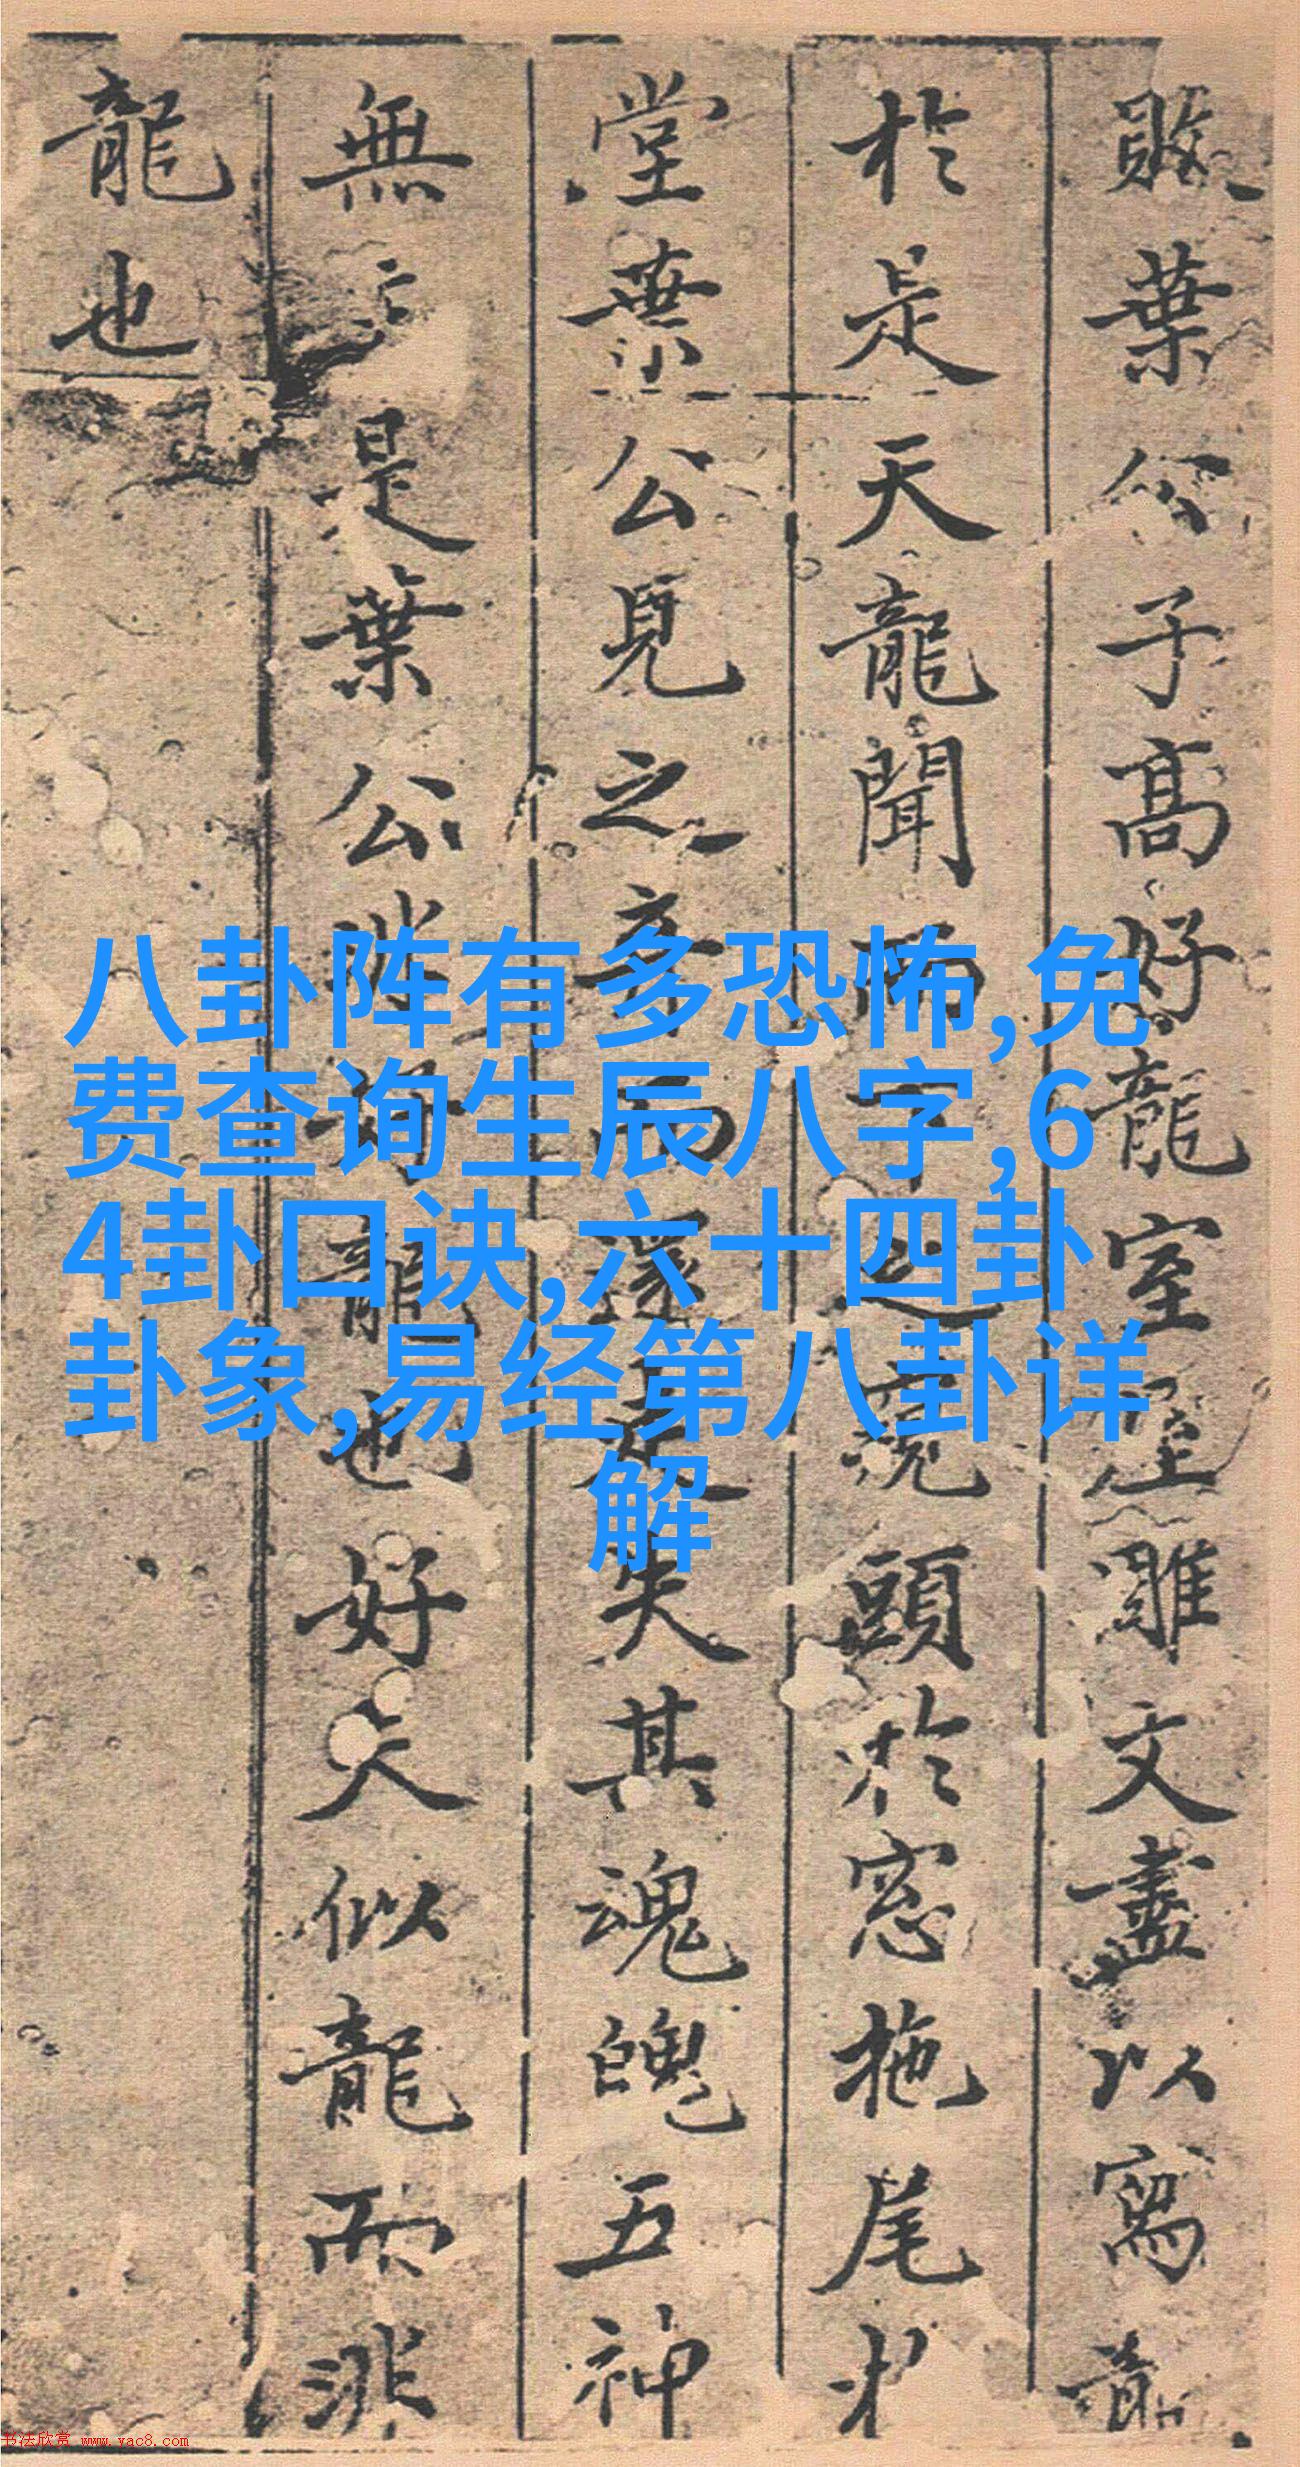 敗葉公子高好龍室屋雕文盡以寫龍
於是天龍聞而下之窺頭於窓拖尾於
堂葉公見之弃而還走失其魂魄五神
無主是葉公非好龍也好夫似龍而非
龍也
八卦阵有多恐怖,免
费查询生辰八字,6
4卦口诀,六十四卦
卦象,易经第八卦详
解
书法欣赏 www.yac8.com